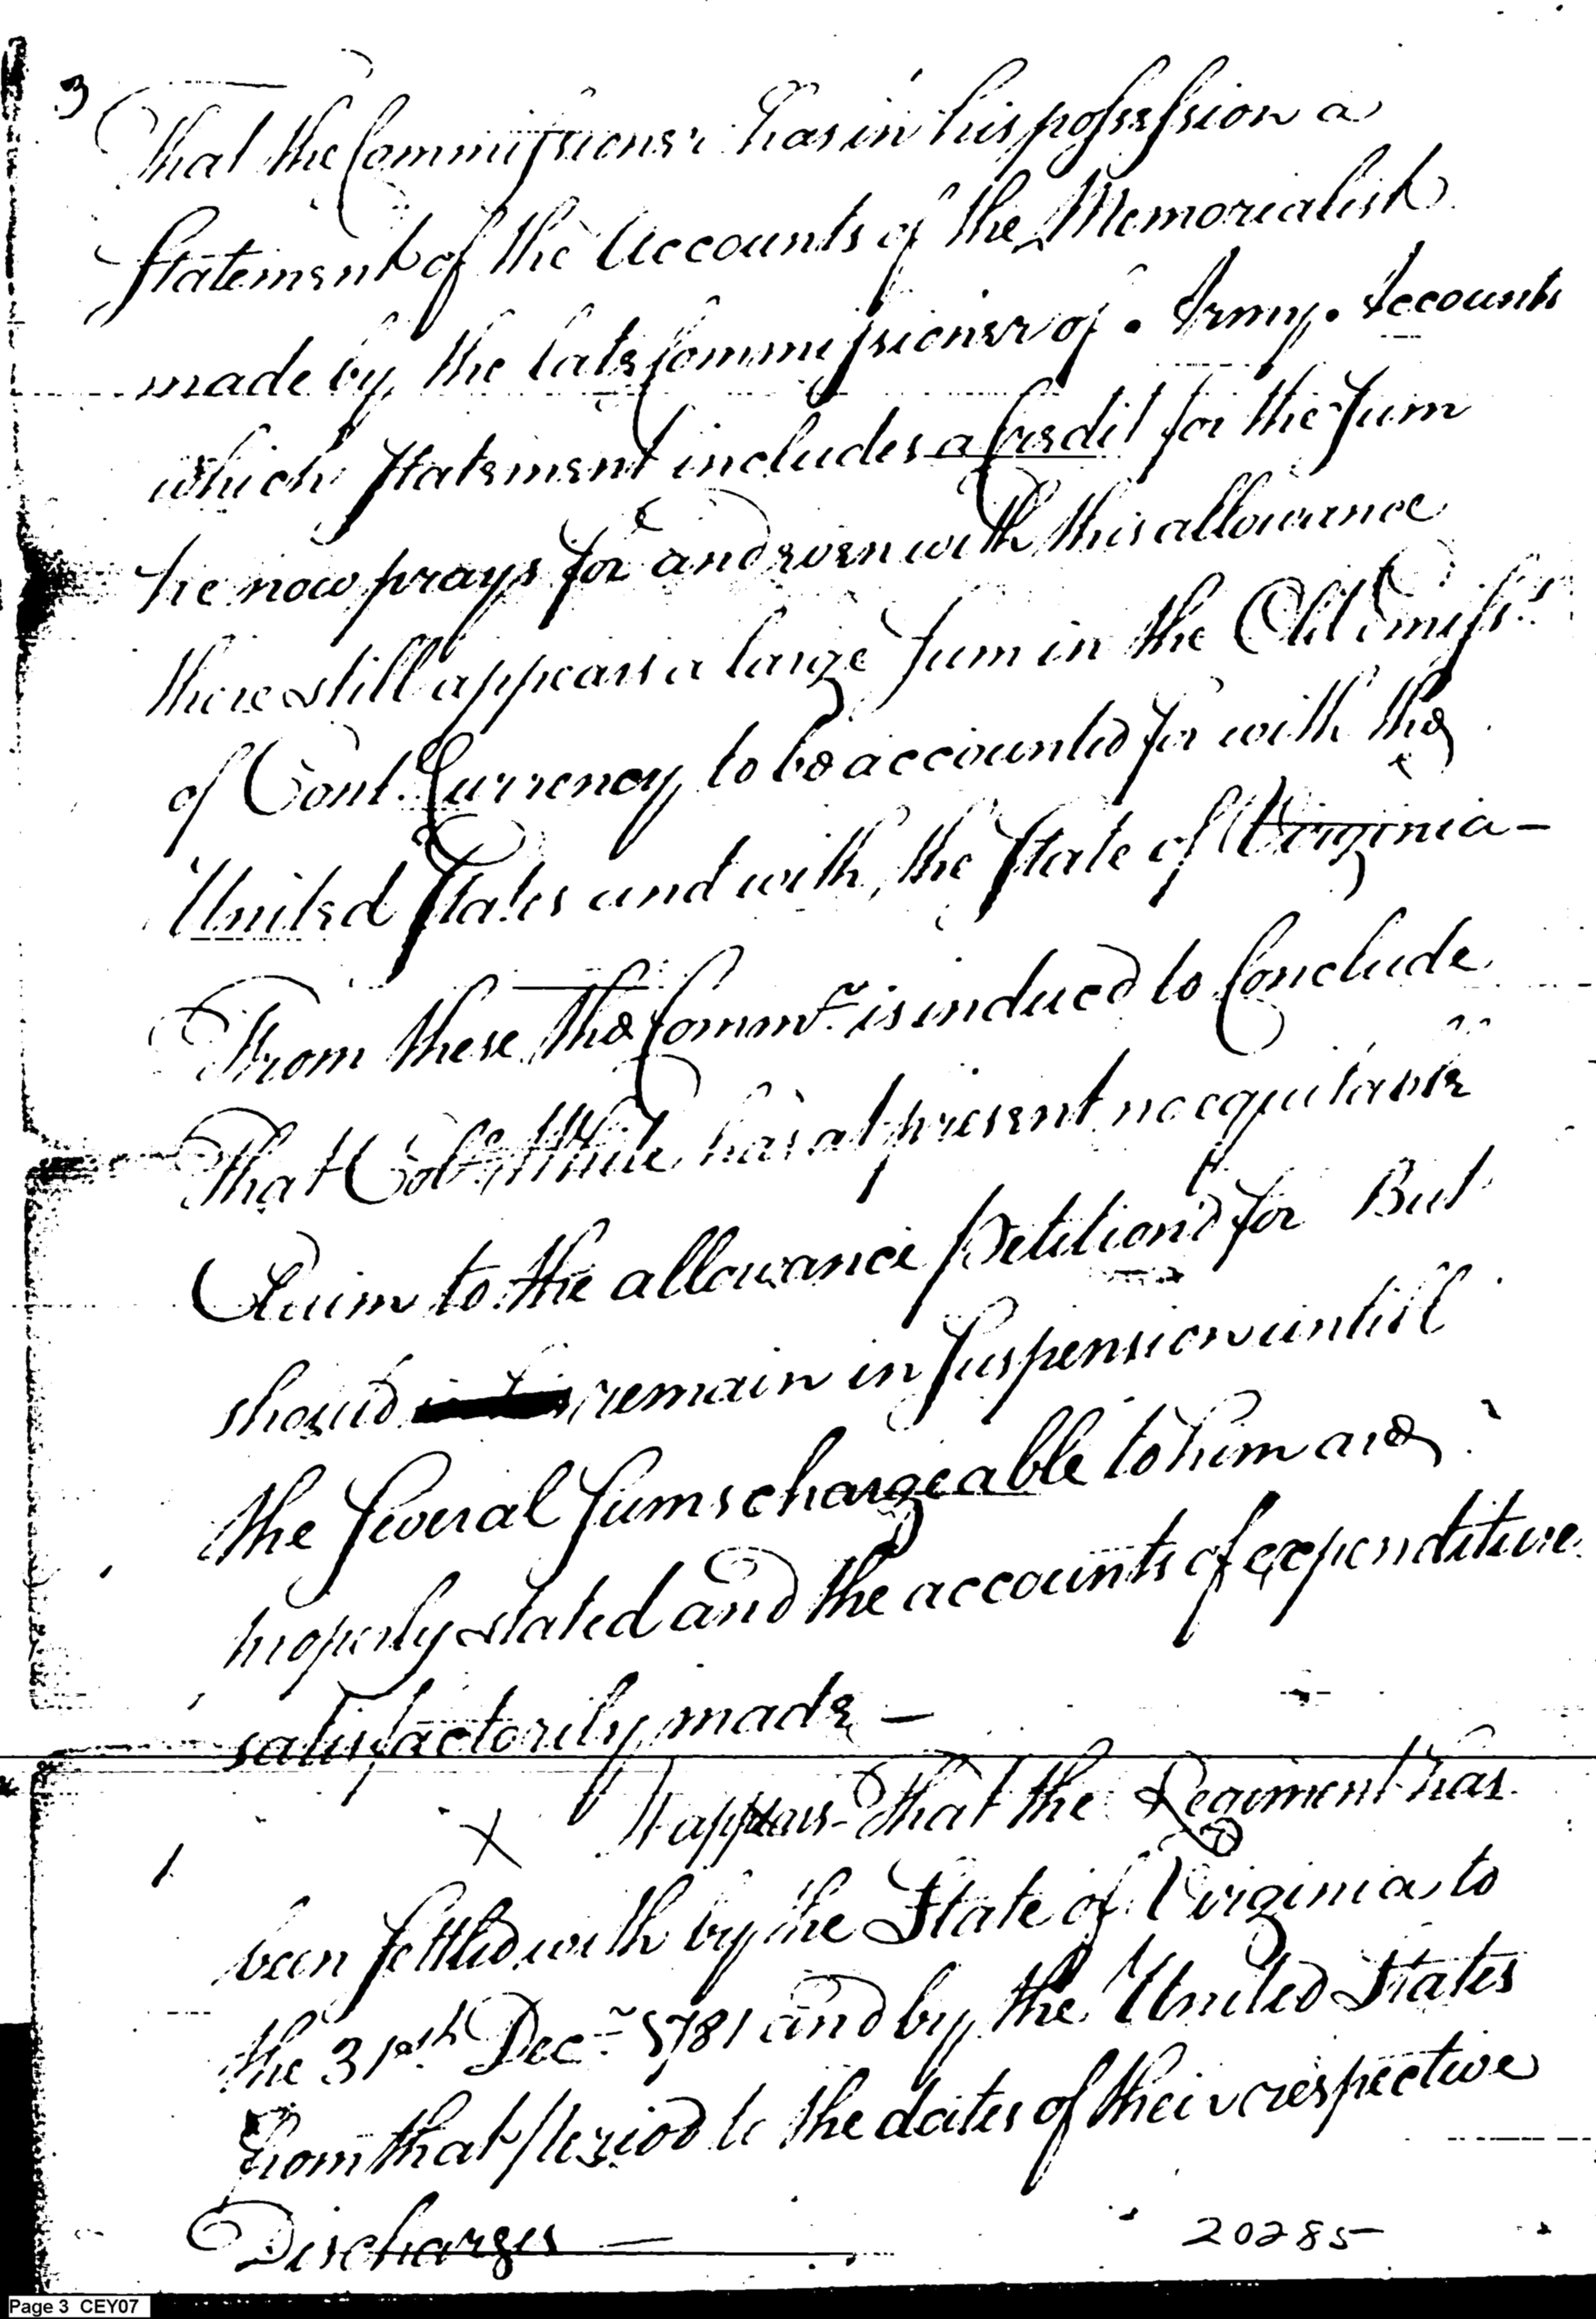 3
That the Commissioner has in his possession a
Statement of the Accounts of the Memorialist
made by the late Commissioner of Army Accounts
which Statement includes a Credit for the Sum
he now prays for and even with this allowance
there still appears a large Sum in the Old Emiss.s
of Cont. Currency to be accounted for with the
United States and with the State of Virginia —
From these the Commr. is induced to Conclude
That Colo. White has at present no equitable
Claim to the allowance Petition'd for But
should remain in Suspension untill
the Several Sums chargeable to him are
properly stated and the accounts of expenditure
satisfactorily made —
X It appears That the Regiment has
been Settled with by the State of Virginia to
the 31st Decr. 1781 and by the United States
from that Period to the dates of their respective
Discharges —
20285
Page 3 CEY07